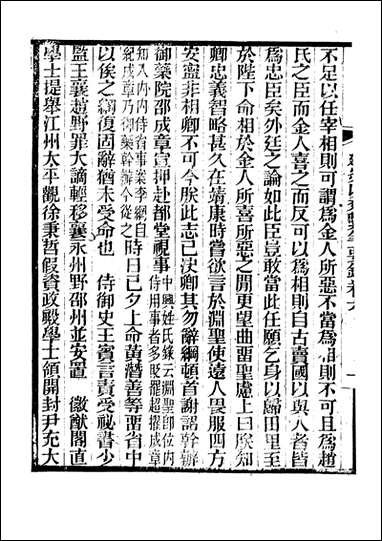 不足以任宰相則可謂為金人所惡不當為相則不可且為趙
氏之臣而金人喜之而反可以為相則自古賣國以與人者皆
為忠臣矣外廷之論如此臣豈敢當此任願乞身以歸田里至
於陛下命相於金人所喜所惡之間更望曲畱聖慮上曰朕知
卿忠義智略甚久在靖康時嘗欲言於淵聖使遠人畏服四方
安寧非相卿不可今朕此志已決卿其勿辭綱頓首謝詔幹辦
御藥院邵成章宣押赴都堂視事中興姓氏錄云淵聖即位內
侍用事者多貶罷超擢成章
知入內內侍省事案李綱自
紀成章乃御藥幹辦今從之時日已夕上命黃潛善等畱省中
以俟之綱復固辭猶未受命也 侍御史王賓言責受祕書少
監王襄趙野罪大謫輕移襄永州野邵州並安置 徽猷閣直
學士提舉江州太平觀徐秉哲假資政殿學士領開封尹充大